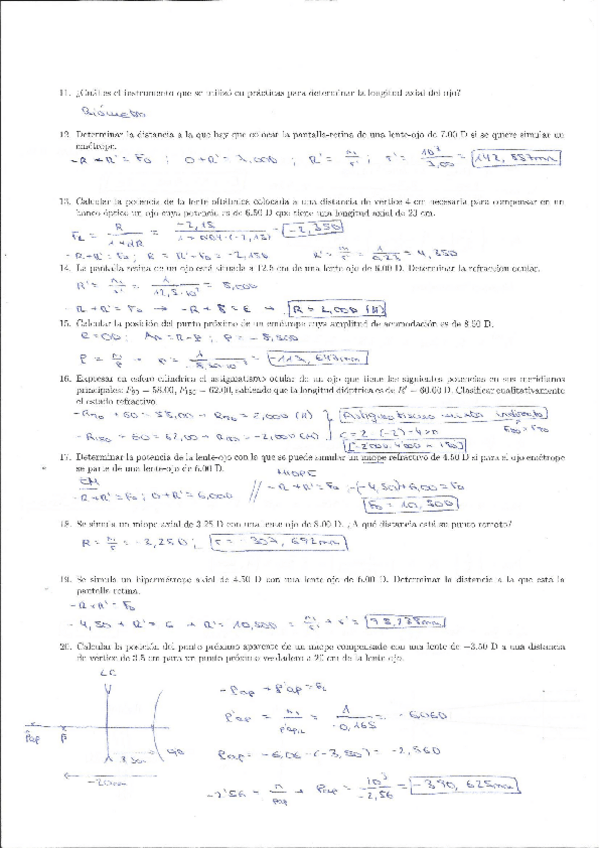 11. ¿Cuál es el instrumento que se utilizó en prácticas para determinar la longitud axial del ojo?
Biómetro
12. Determinar la distancia a la que hay que colocar la pantalla-retina de una lente-ojo de 7.00 D si se quiere simular un
emétrope.
-R + R' = F0 ; 0 + R' = 7,000 ; R' = n/r' ; r' = 10³/7,00 = 142,857mm
13. Calcular la potencia de la lente oftálmica colocada a una distancia de vértice 4 cm necesaria para compensar en un
banco óptico un ojo cuya potencia es de 6.50 D que tiene una longitud axial de 23 cm.
= R/1+dR = -2,15 = -2,350
-R + R' = F0 ; R = R' - F0 = -2,150 R' = 1/0,23 = 4,350
14. La pantalla retina de un ojo está situada a 12.5 cm de una lente ojo de 6.00 D. Determinar la refracción ocular.
R' = = 1/12,5·10 = 8,000
-R + R' = F0 → -R + 8 = 6 → R = 2,000 (H)
15. Calcular la posición del punto próximo de un emétrope cuya amplitud de acomodación es de 8.50 D.
R = 0D; Am = R - P ; P = -8,500
P = → = -117,647mm
16. Expresar en esfero cilíndrica el astigmatismo ocular de un ojo que tiene las siguientes potencias en sus meridianos
principales: sabiendo que la longitud dióptrica es de R' = 60.00 D. Clasificar cualitativamente
el estado refractivo.
+ 60 = 58,00 → = 2,000 (H) Astigmatismo mixto
+ 60 = 62,00 → = -2,000 (M) C = 2 - (-2) = 4
17. Determinar la potencia de la lente-ojo con la que se puede simular un miope refractivo de 4.50 D si para el ojo emétrope
se parte de una lente-ojo de 6.00 D. MIOPE
EM
-R + R' = F0 ; 0 + R' = 6,000 // -R + R' = F0 ; -(-4,50) + 6,00 = F0
F0 = 10,500
18. Se simula un miope axial de 3.25 D con una lente ojo de 8.00 D. ¿A qué distancia está su punto remoto?
R = n/r = -3,25D ; r = -307,692mm
19. Se simula un hipermétrope axial de 4.50 D con una lente ojo de 6.00 D. Determinar la distancia a la que está la
pantalla retina.
-R + R' = F0
-4,50 + R' = 6 → R' = 10,500 = → r' = 95,238mm
20. Calcular la posición del punto próximo aparente de un miope compensado con una lente de −3.50 D a una distancia
de vértice de 3.5 cm para un punto próximo verdadero a 20 cm de la lente ojo.
-Pap + P'ap =
P'ap = = 1/-0,165 = -6,060
Pap = -6,06 - (-3,50) = -2,560
-2'56 = n/pap → pap = 10³/-2,56 = -390,625mm
-20cm